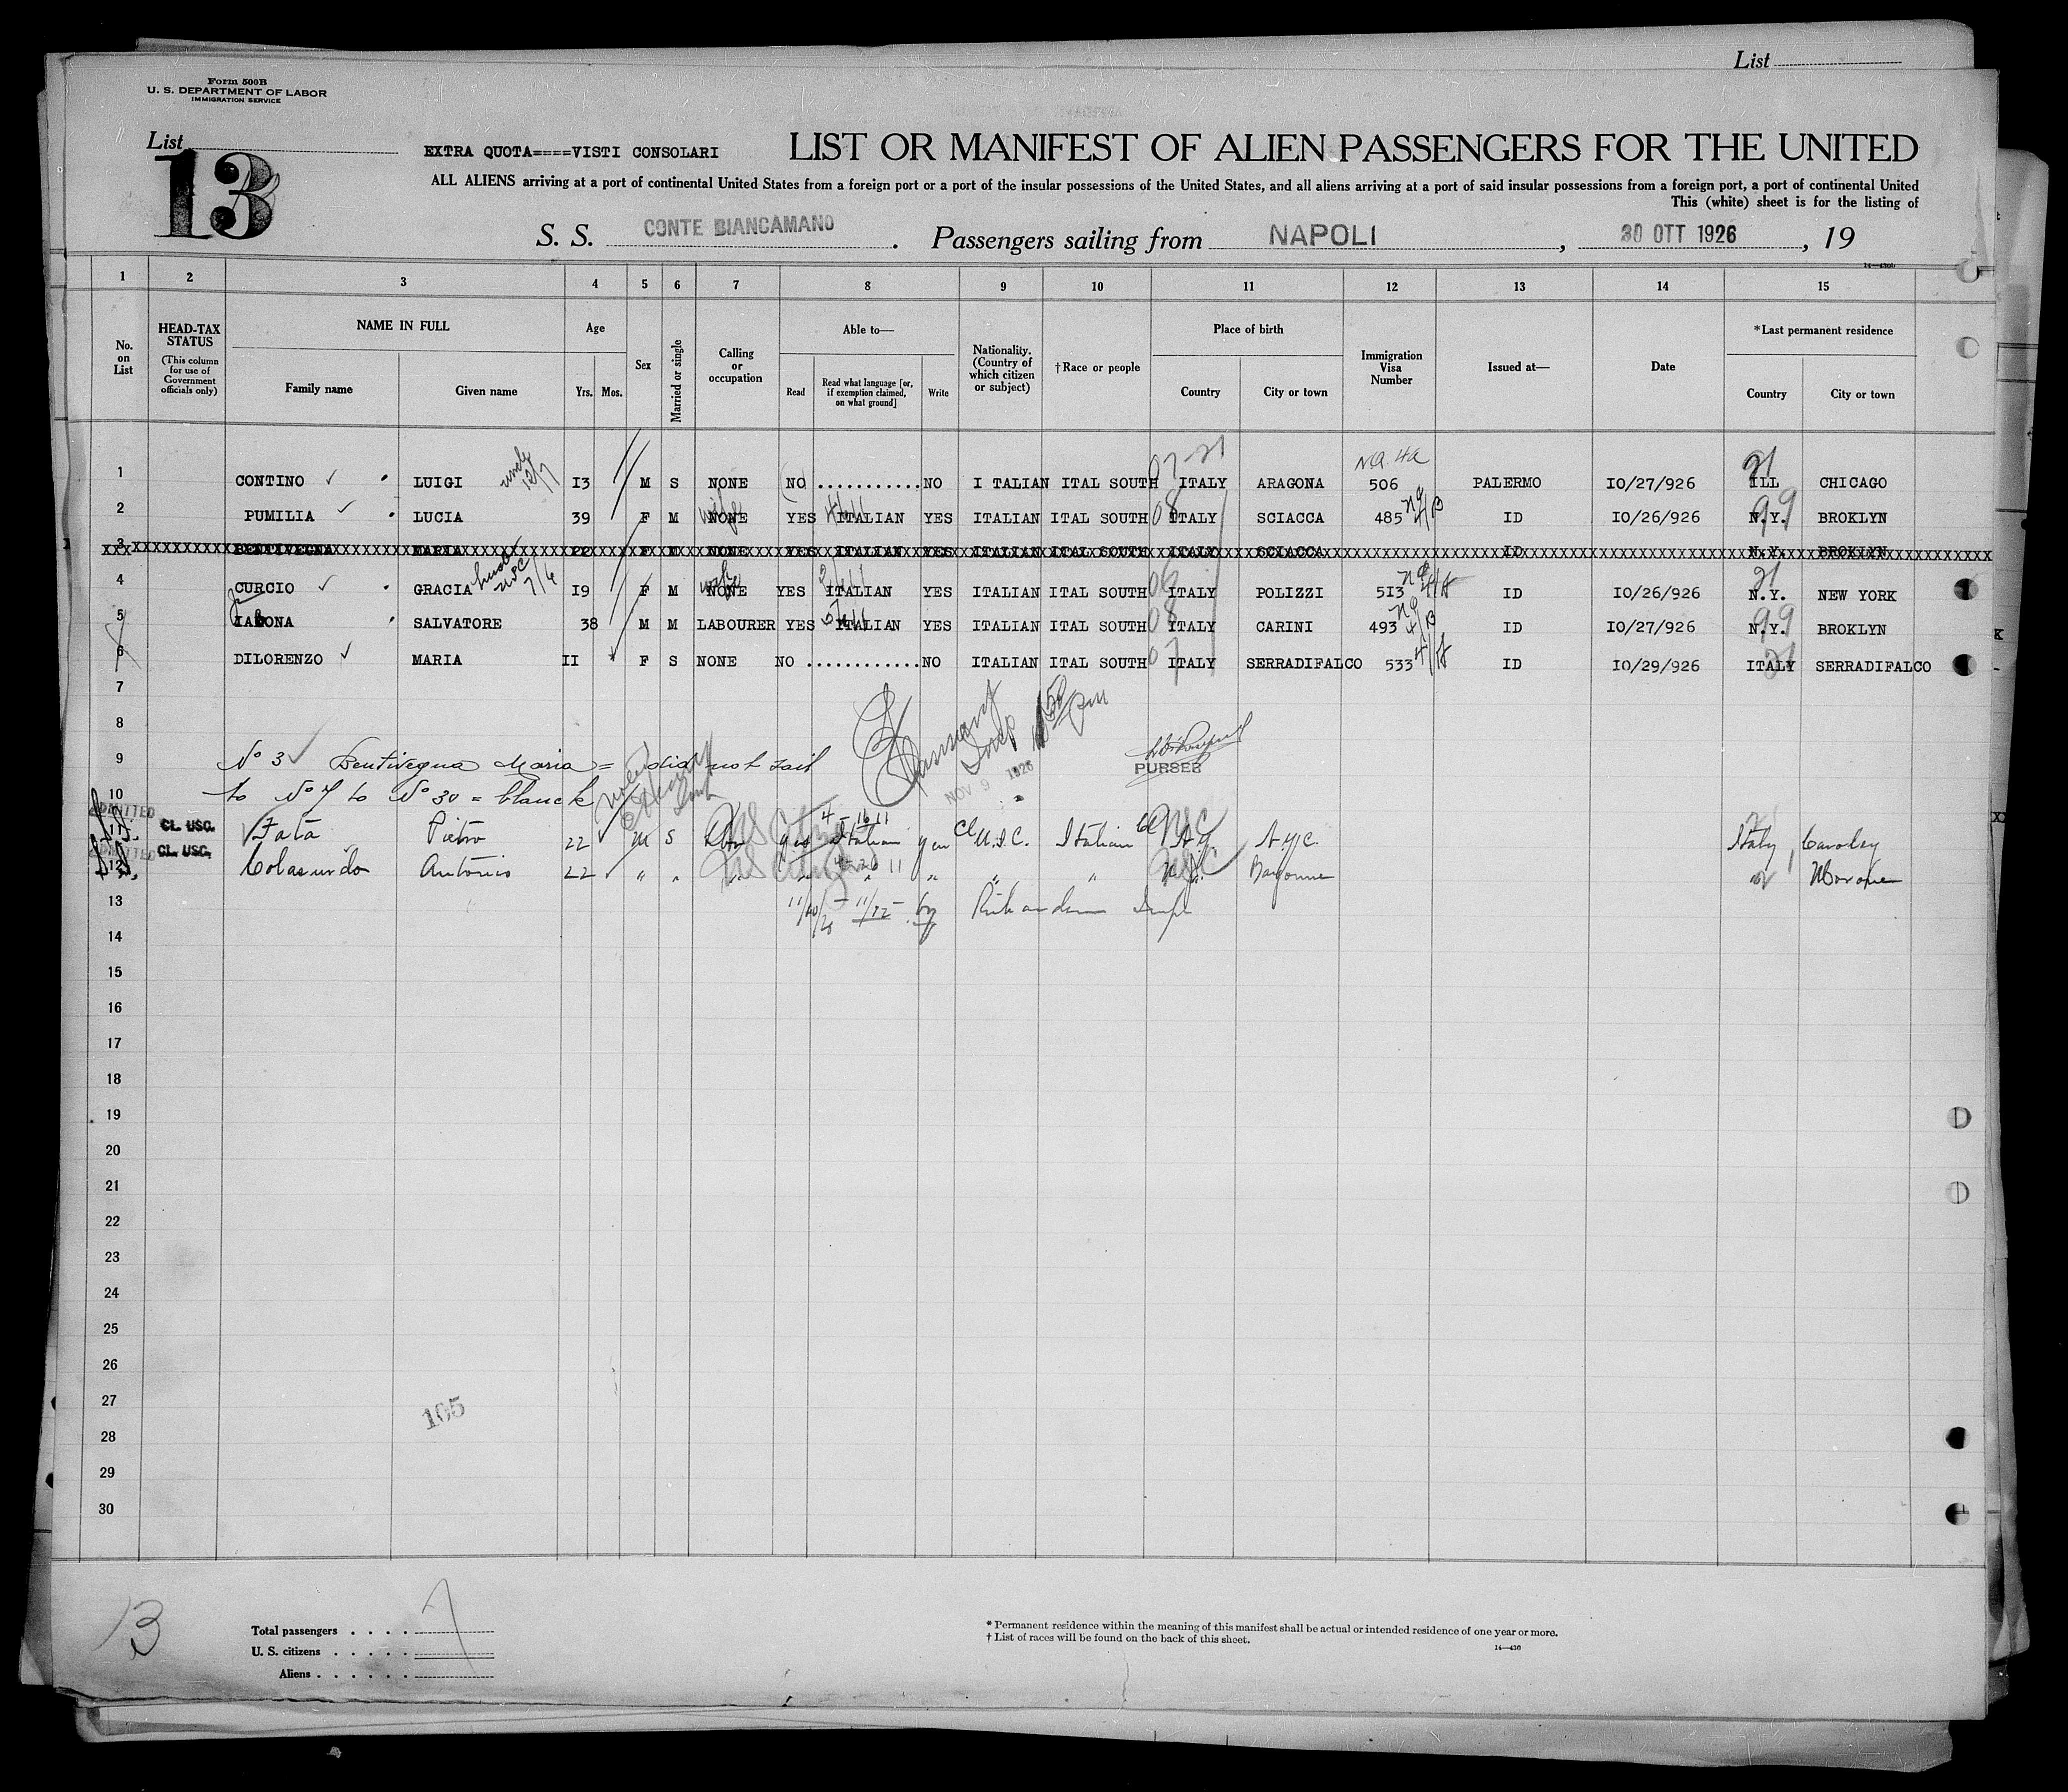 List
Form 500B
U. S. DEPARTMENT OF LABOR
IMMIGRATION SERVICE
List
13
EXTRA QUOTA====VISTI CONSOLARI
LIST OR MANIFEST OF ALIEN PASSENGERS FOR THE UNITED
ALL ALIENS arriving at a port of continental United States from a foreign port or a port of the insular possessions of the United States, and all aliens arriving at a port of said insular possessions from a foreign port, a port of continental United
This (white) sheet is for the listing of
S. S. CONTE BIANCAMANO . Passengers sailing from NAPOLI , 30 OTT 1926 , 19
14—430b
1 2 3 4 5 6 7 8 9 10 11 12 13 14 15
No. on List
HEAD-TAX STATUS (This column for use of Government officials only)
NAME IN FULL
Family name Given name
Age
Yrs. Mos.
Sex
Married or single
Calling or occupation
Able to—
Read
Read what language [or, if exemption claimed, on what ground]
Write
Nationality. (Country of which citizen or subject)
†Race or people
Place of birth
Country City or town
Immigration Visa Number
Issued at—
Date
*Last permanent residence
Country City or town
07-21 NQ. 4a 21
1 CONTINO LUIGI uncle 12/7 I3 M S NONE NO ........... NO I TALIAN ITAL SOUTH ITALY ARAGONA 506 PALERMO I0/27/926 ILL CHICAGO
2 PUMILIA LUCIA 39 F M NONE wife YES ITALIAN YES ITALIAN ITAL SOUTH 08 ITALY SCIACCA 485 NQ 4/B ID I0/26/926 N.Y. 99 BROKLYN
3 BENTIVEGNA MARIA 22 F M NONE YES ITALIAN YES ITALIAN ITAL SOUTH ITALY SCIACCA ID N.Y. BROKLYN
4 CURCIO GRACIA I9 F M NONE wife YES ITALIAN YES ITALIAN ITAL SOUTH ITALY POLIZZI 5I3 ID I0/26/926 21 N.Y. NEW YORK
5 IABONA SALVATORE 38 M M LABOURER YES ITALIAN YES ITALIAN ITAL SOUTH 08 ITALY CARINI 493 NQ 4/B ID I0/27/926 N.Y. 99 BROKLYN
6 DILORENZO MARIA II F S NONE NO ............ NO ITALIAN ITAL SOUTH 07 ITALY SERRADIFALCO 533 ID I0/29/926 ITALY 21 SERRADIFALCO
7
8
9 No 3 Bentivegna Maria = did not sail
PURSER
NOV 9 1926
10 to No 7 to No 30 = blanck
ADMITTED
11 CL. USC. Fata Pietro 22 M S yes Italian yes Cl U.S.C. Italian N.Y. N.Y.C. Italy
ADMITTED
12 CL. USC. Colasurdo Antonio 22 " " " " " " " N.J. Bayonne
13 11/10/26 - 11/12 - by
14
15
16
17
18
19
20
21
22
23
24
25
26
27
105
28
29
30
13
Total passengers . . . . 7
U. S. citizens . . . . .
Aliens . . . . . .
* Permanent residence within the meaning of this manifest shall be actual or intended residence of one year or more.
† List of races will be found on the back of this sheet.
14—430